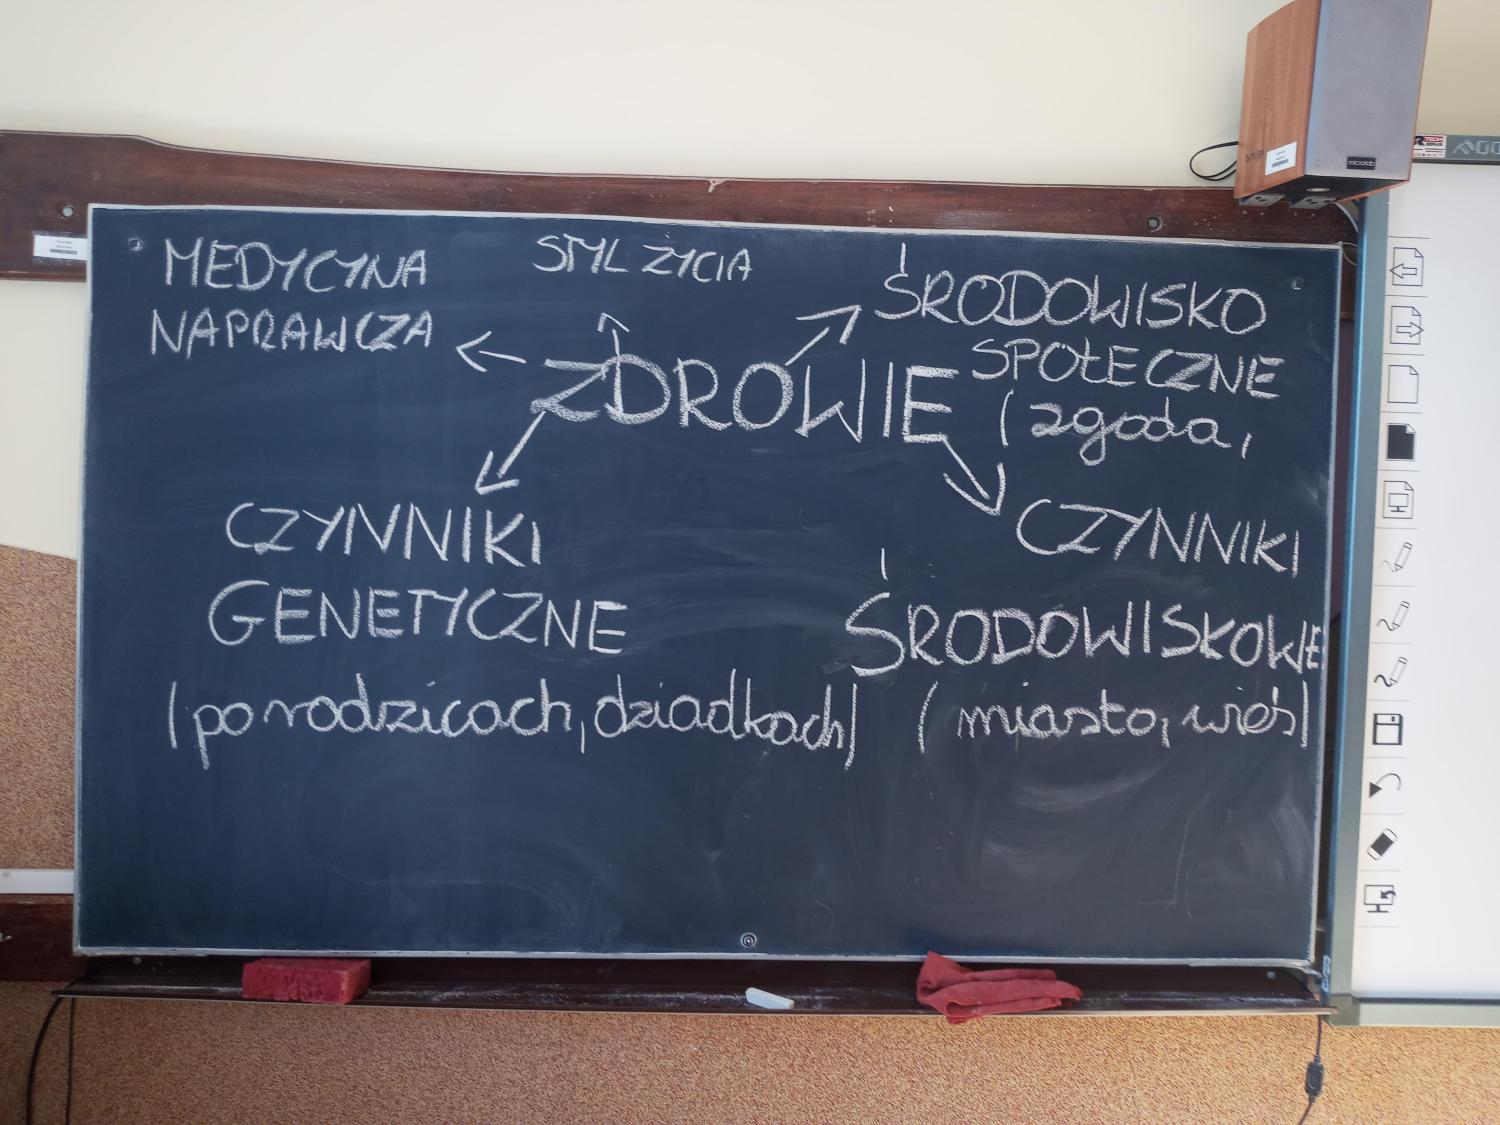 MEDYCYNA
NAPRAWCZA
STYL ŻYCIA
ŚRODOWISKO
SPOŁECZNE
(zgoda,
ZDROWIE
CZYNNIKI
GENETYCZNE
(po rodzicach, dziadkach)
CZYNNIKI
ŚRODOWISKOWE
(miasto, wieś)
microlab